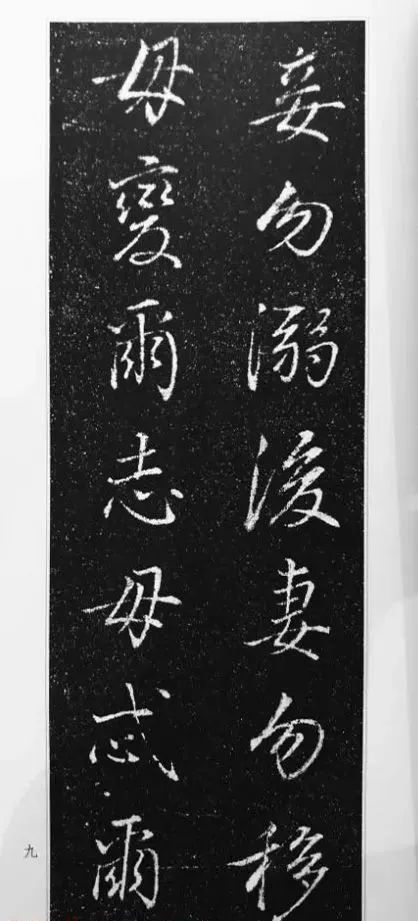 妾勿溺後妻勿移
毋變爾志毋忒爾
九